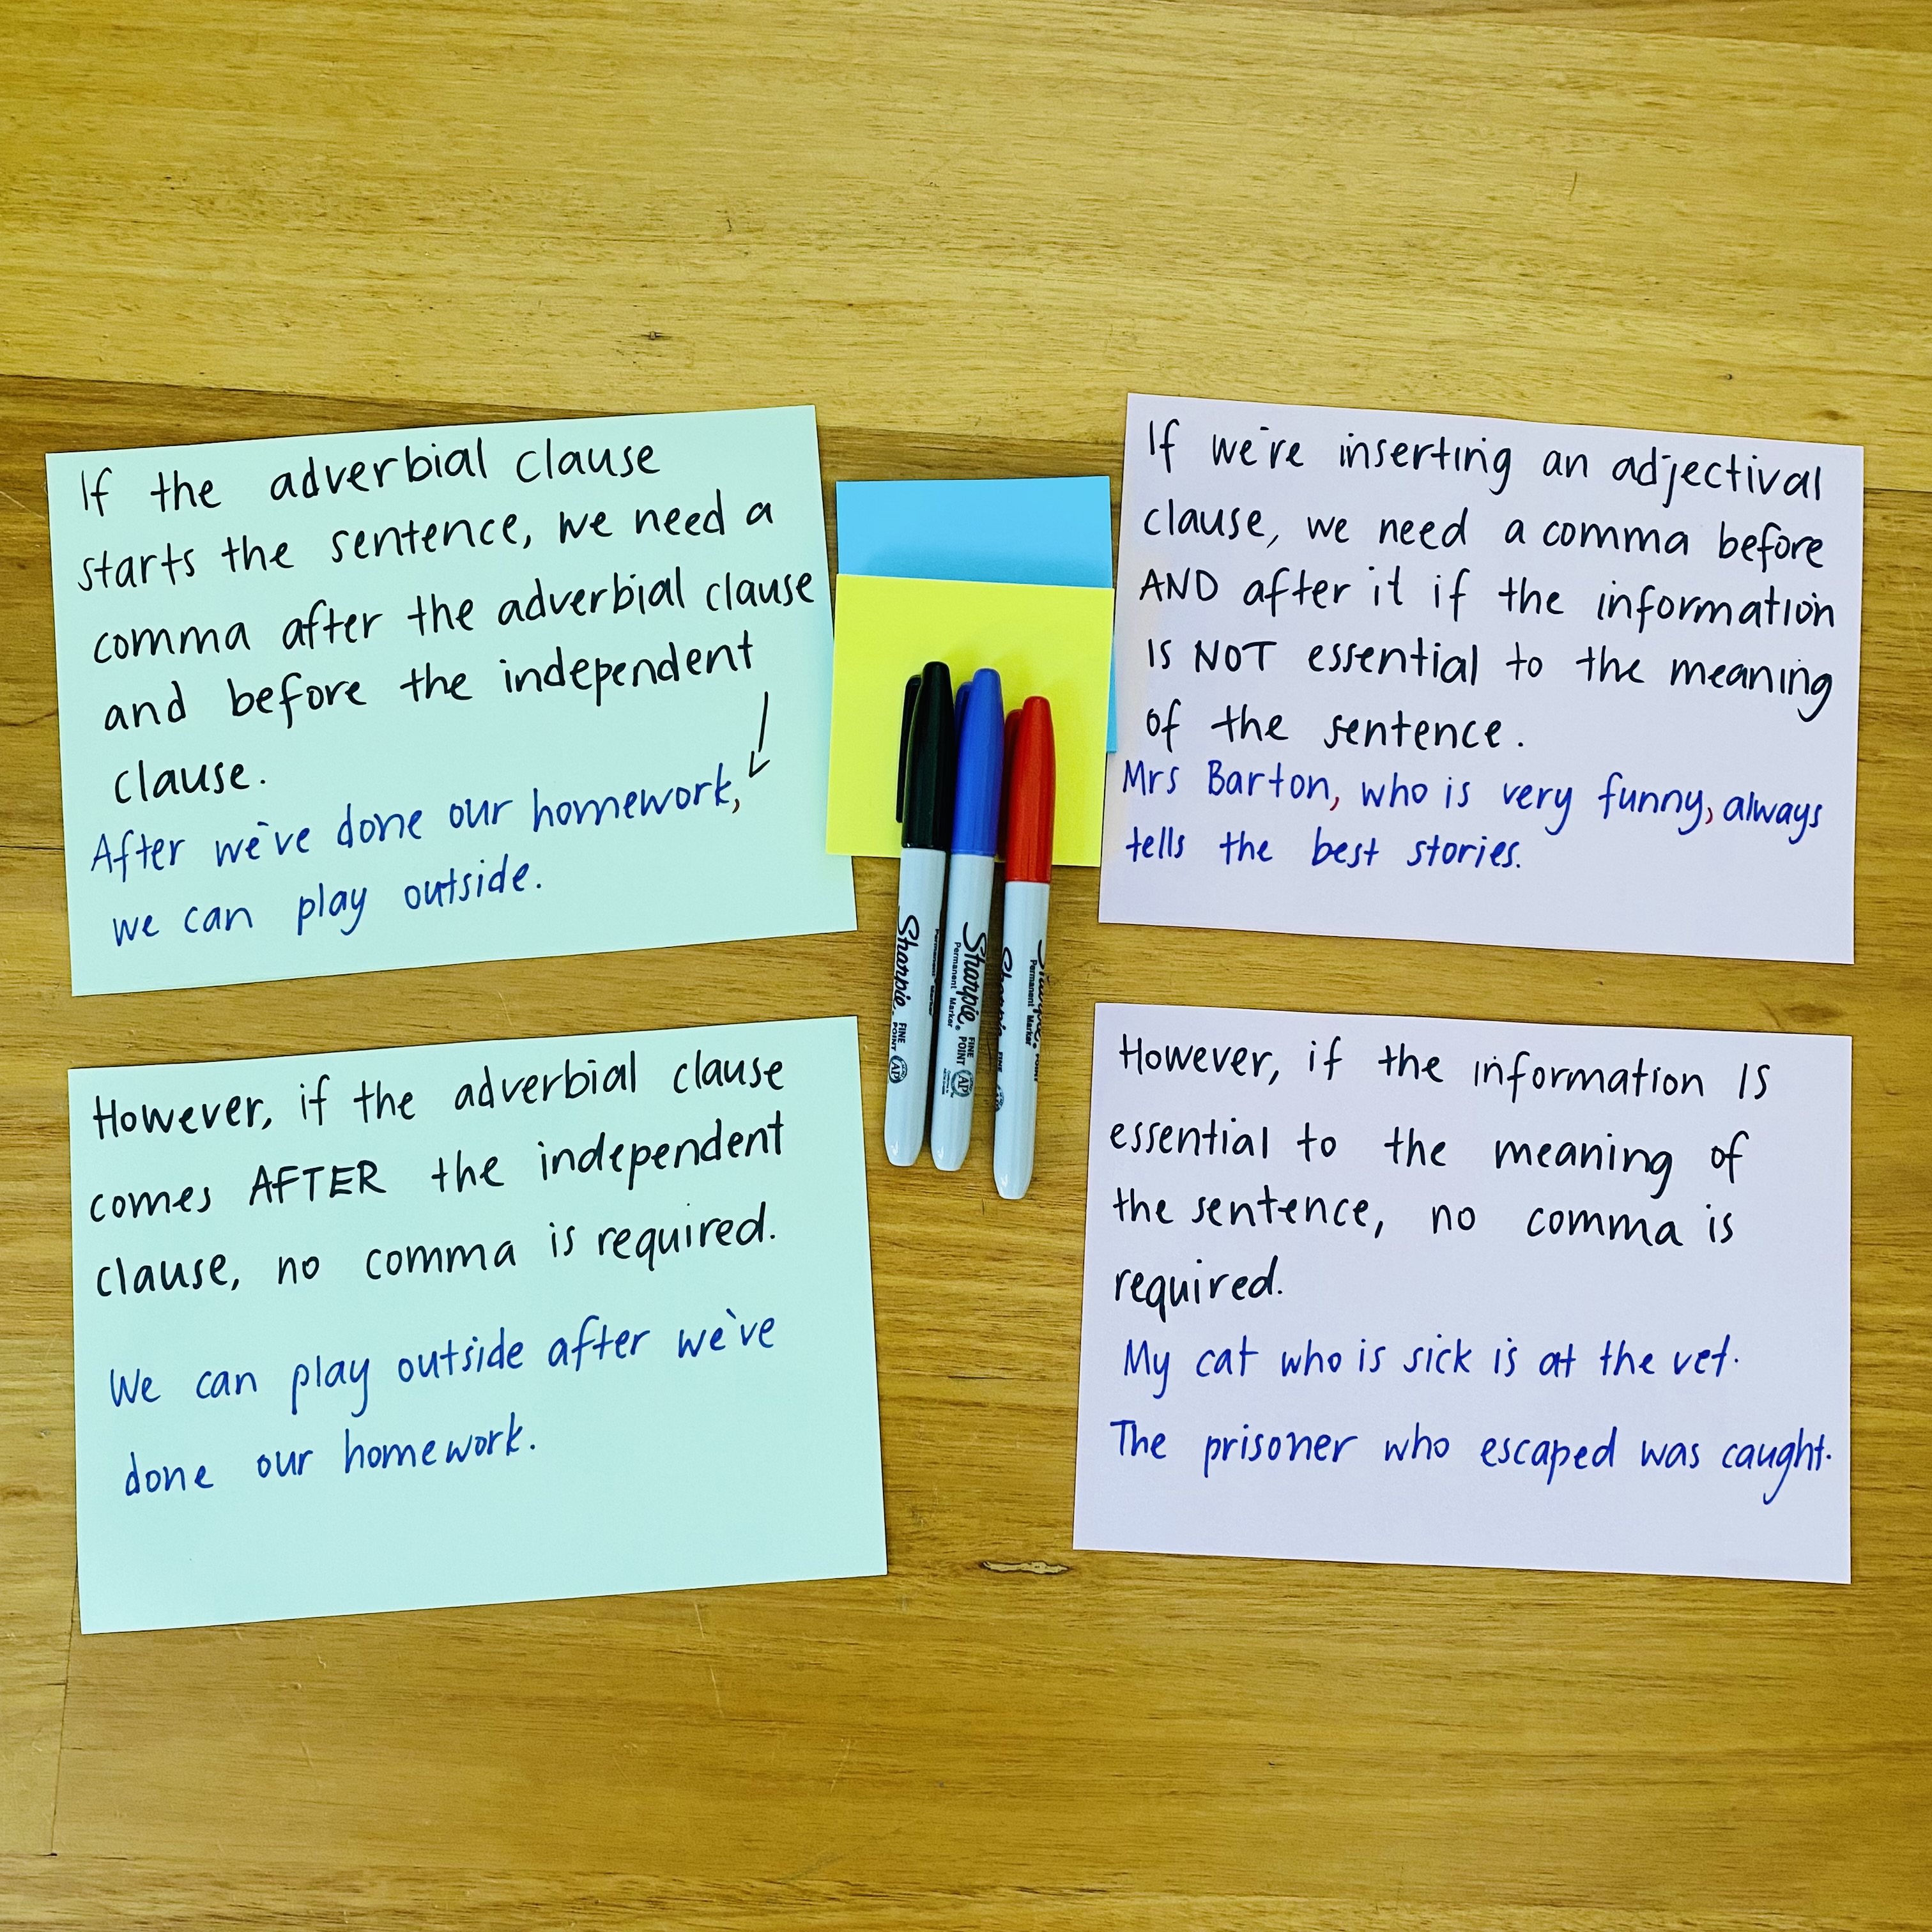 If the adverbial clause
starts the sentence, we need a
comma after the adverbial clause
and before the independent
clause.
After we've done our homework,
we can play outside.
If we're inserting an adjectival
clause, we need a comma before
AND after it if the information
is NOT essential to the meaning
of the sentence.
Mrs Barton, who is very funny, always
tells the best stories.
However, if the adverbial clause
comes AFTER the independent
clause, no comma is required.
We can play outside after we've
done our homework.
However, if the information IS
essential to the meaning of
the sentence, no comma is
required.
My cat who is sick is at the vet.
The prisoner who escaped was caught.
Sharpie.
FINE POINT
AP
Permanent Marker
Sharpie.
Permanent Marker
FINE POINT
AP
Sharpie
Permanent Marker